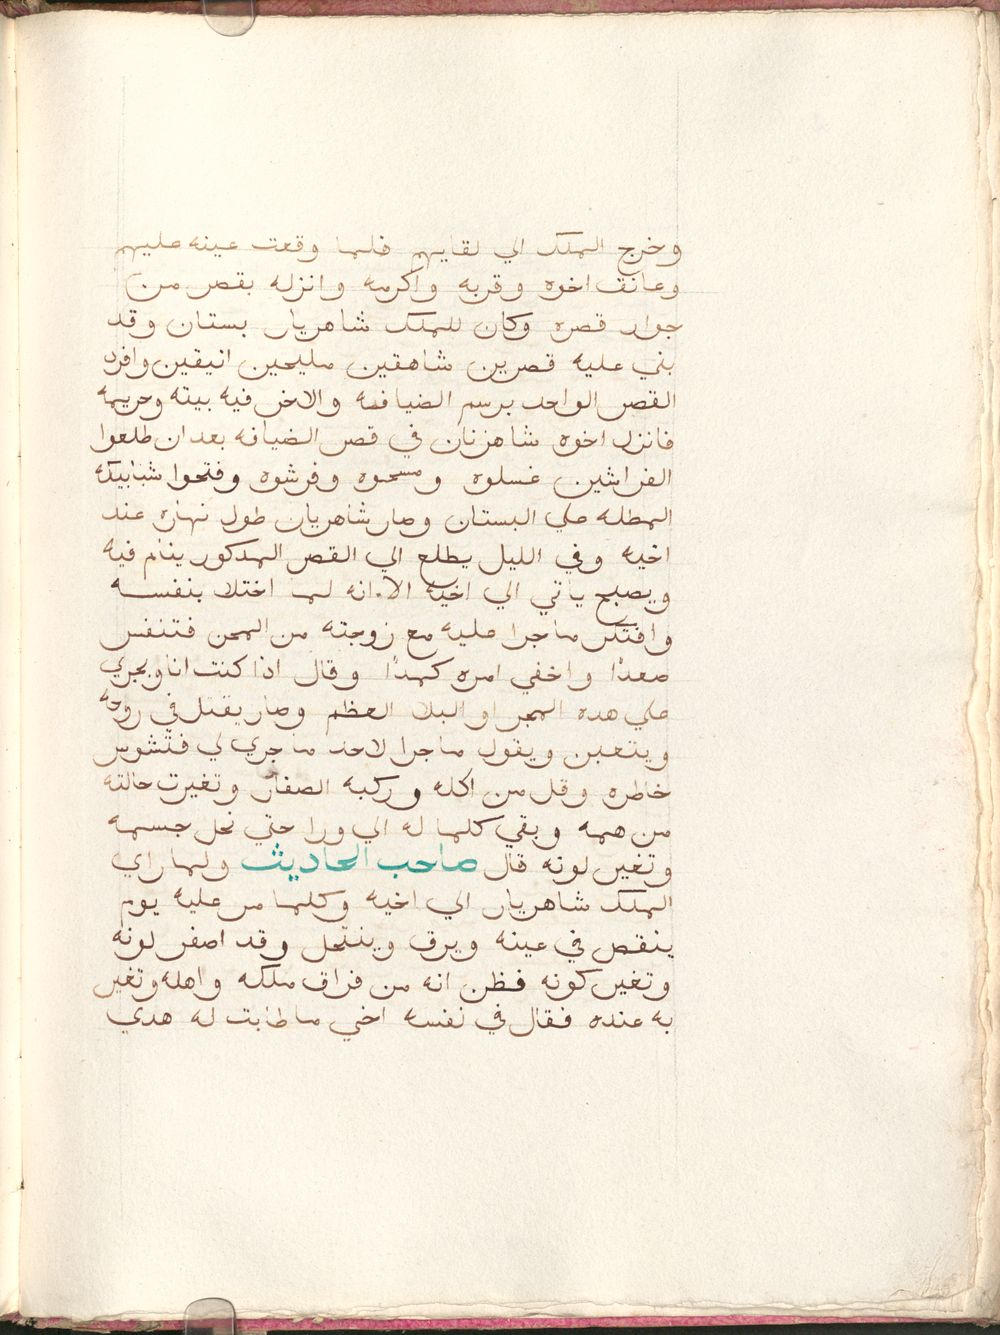 وخرج الملك الي لقايهم فلما وقعت عينه عليهم
وعانق اخوه وقربه واكرمه وانزله بقصر من
جوار قصره وكان للملك شاهريار بستان وقد
بني عليه قصرين شاهقين مليحين انيقين وافرد
القصر الواحد برسم الضيافه والاخر فيه بيته وحريمه
فانزل اخوه شاهزنان في قصر الضيافه بعد ان طلعوا
الفراشين غسلوه ومسحوه وفرشوه وفتحوا شبابيكه
المطله علي البستان وصار شاهريار طول نهاره عند
اخيه وفي الليل يطلع الي القصر المدكور ينام فيه
ويصبح ياتي الي اخيه الا انه لما اختلا بنفسه
وافتكر ما جرا عليه مع زوجته من المحن فتنفس
صعدًا واخفي امره كمدًا وقال اذا كنت انا ويجري
علي هده المحن او البلا العظم وصار يقتل في روحه
ويتعبن ويقول ما جرا لاحد ما جري لي فتشوس
خاطره وقل من اكله وركبه الصفار وتغيرت حالته
من همه وبقي كلما له الي ورا حتي نحل جسمه
وتغير لونه قال صاحب الحاديث ولما راي
الملك شاهريار الي اخيه وكلما مر عليه يوم
ينقص في عينه ويرق وينتحل وقد اصفر لونه
وتغير كونه فظن انه من فراق ملكه واهله وتغير
به عنده فقال في نفسه اخي ما طابت له هدي